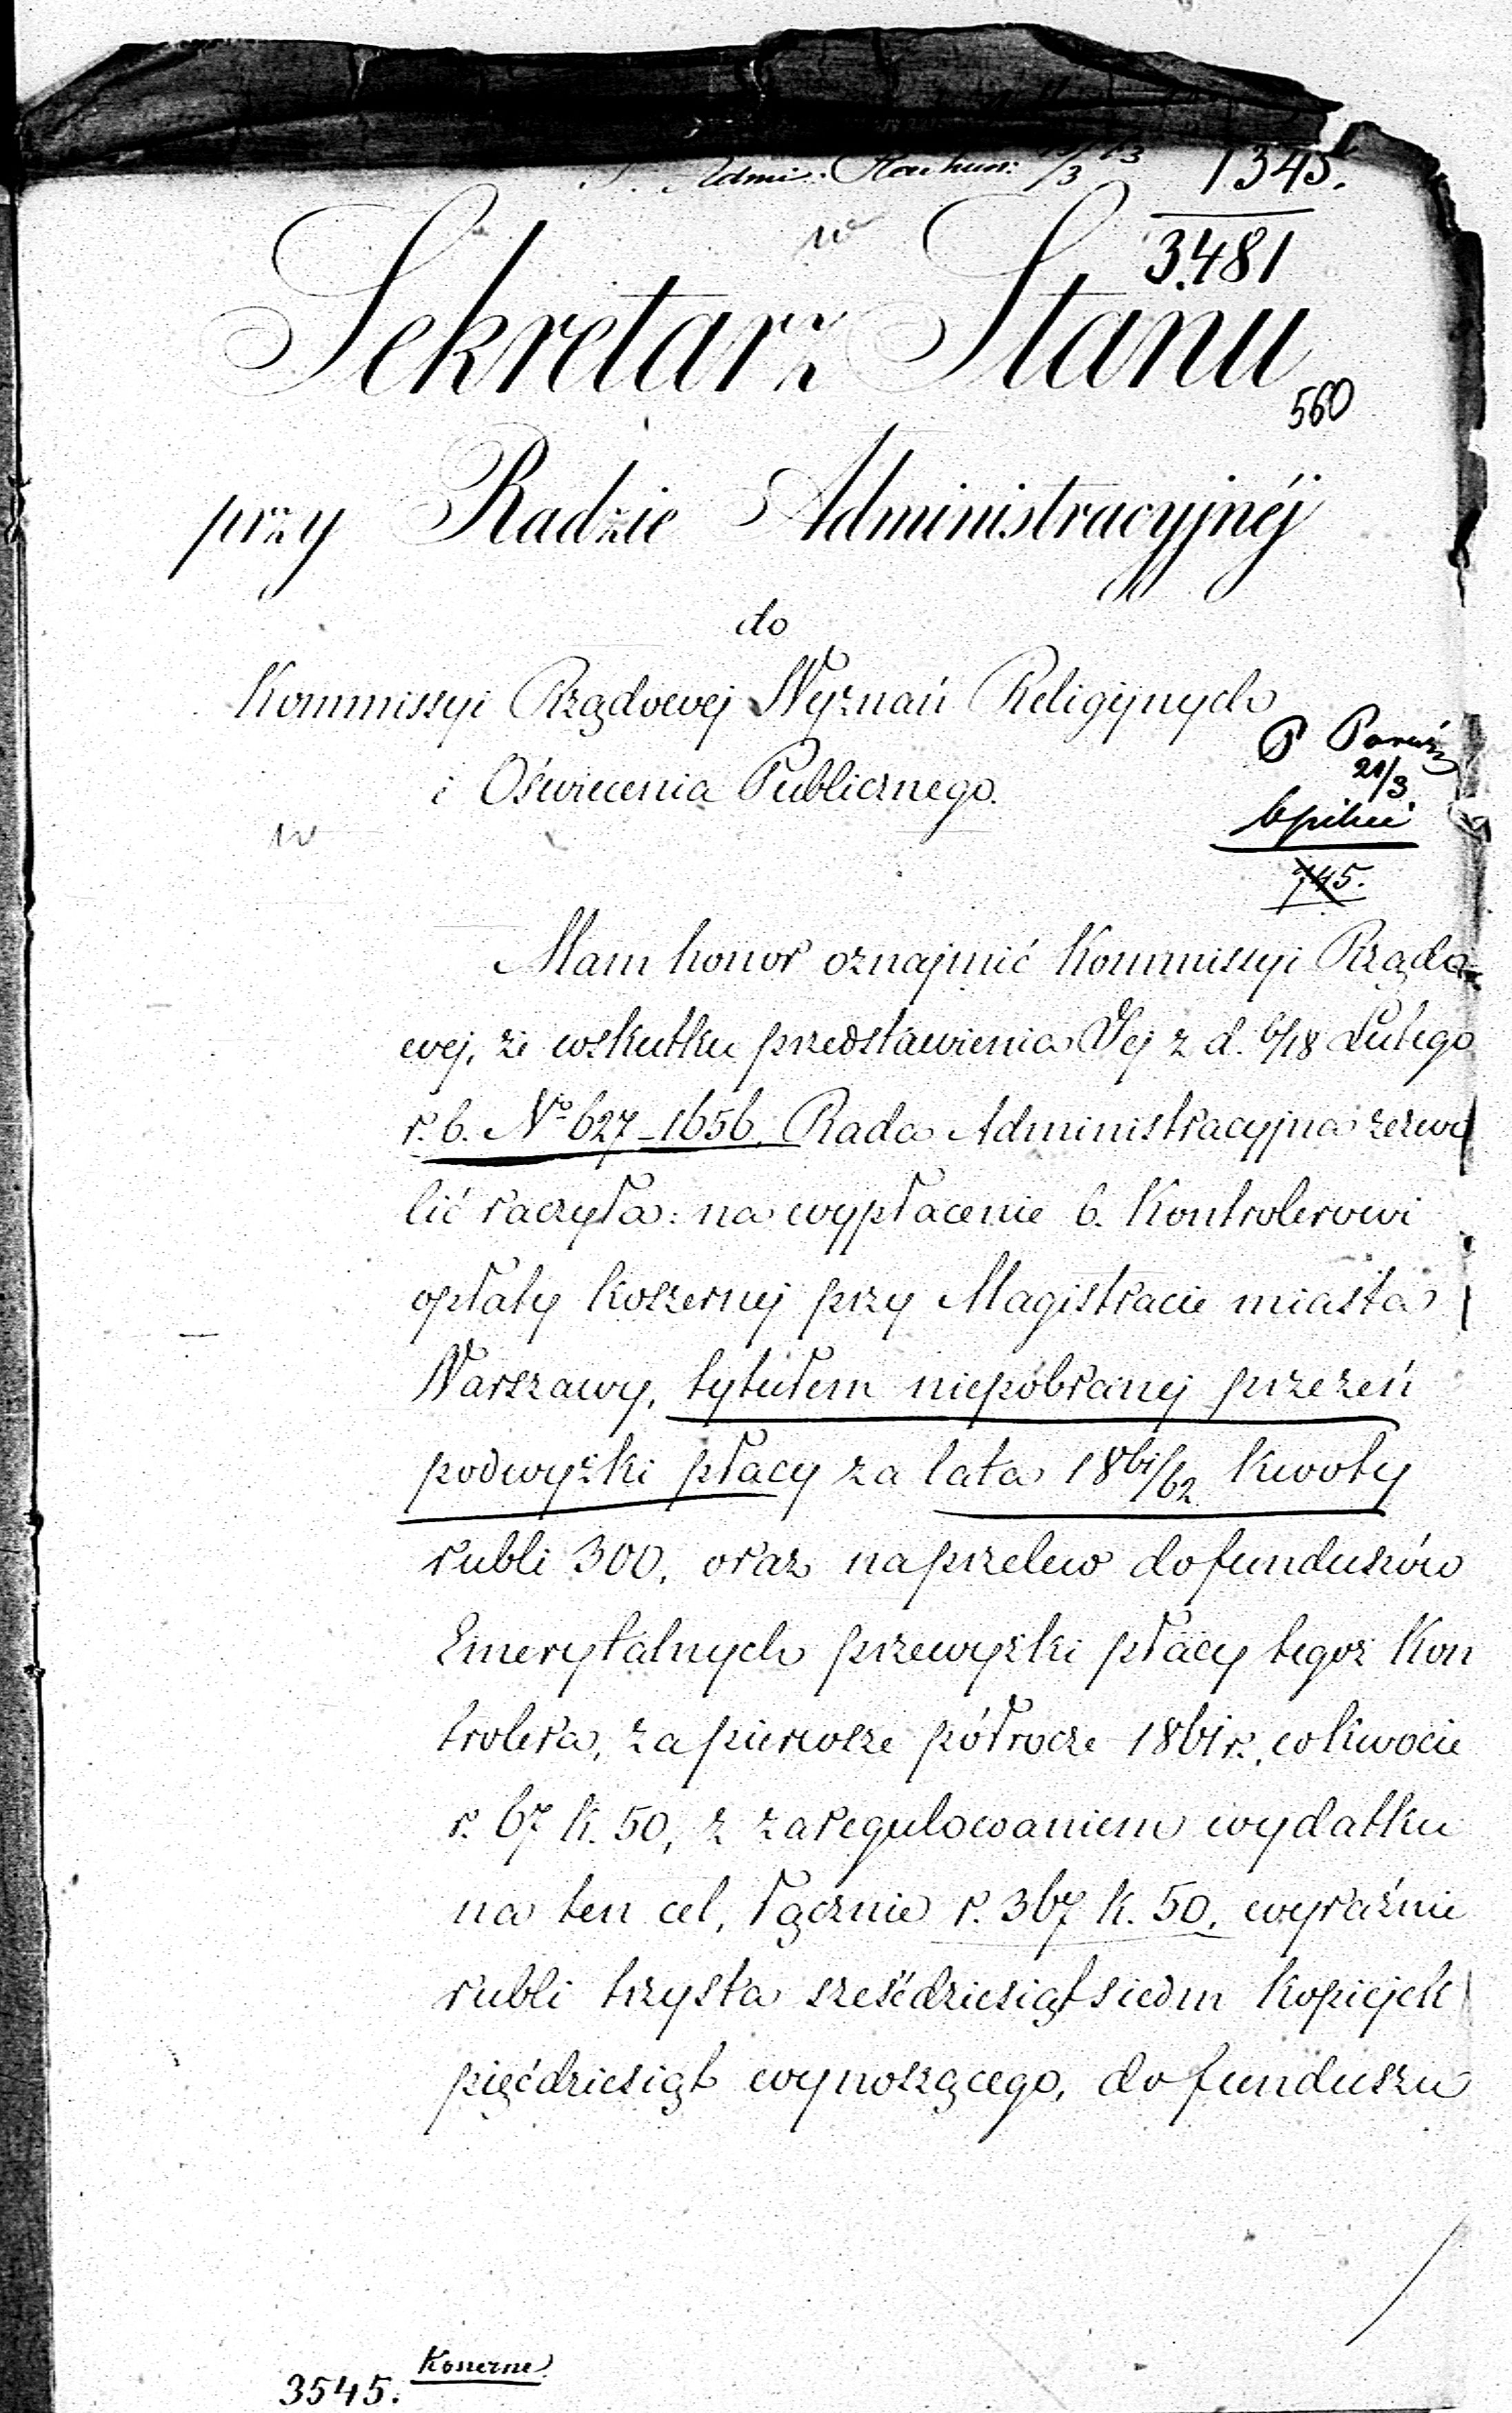 Admi:
1345.
3481
Sekretarz Stanu
560
przy Radzie Administracyjnéj
do
Kommissyi Rządowej Wyznań Religijnych
i Oświecenia Publicznego.
P
21/3
745.
Mam honor oznajmić Kommissyi Rządo
wej, że wskutku przedstawienia Jej z d. 6/18 Lutego
r. b. No 627_1656. Rada Administracyjna zezwo
lić raczyła: na wypłacenie b. Kontrolerowi
opłaty koszernej przy Magistracie miasta
Warszawy, tytułem niepobranej przezeń
podwyżki płacy za lata 1861/62 kwoty
rubli 300, oraz na przelew do funduszów
Emerytalnych przewyżki płacy tegoż Kon
trolera, za pierwsze półrocze 1861 r., w kwocie
r. 67 k. 50, z zaregulowaniem wydatku
na ten cel, łącznie r. 367 k. 50, wyraźnie
rubli trzysta sześćdziesiąt siedm kopiejek
pięćdziesiąt wynoszącego, do funduszu
Koszerne
3545.